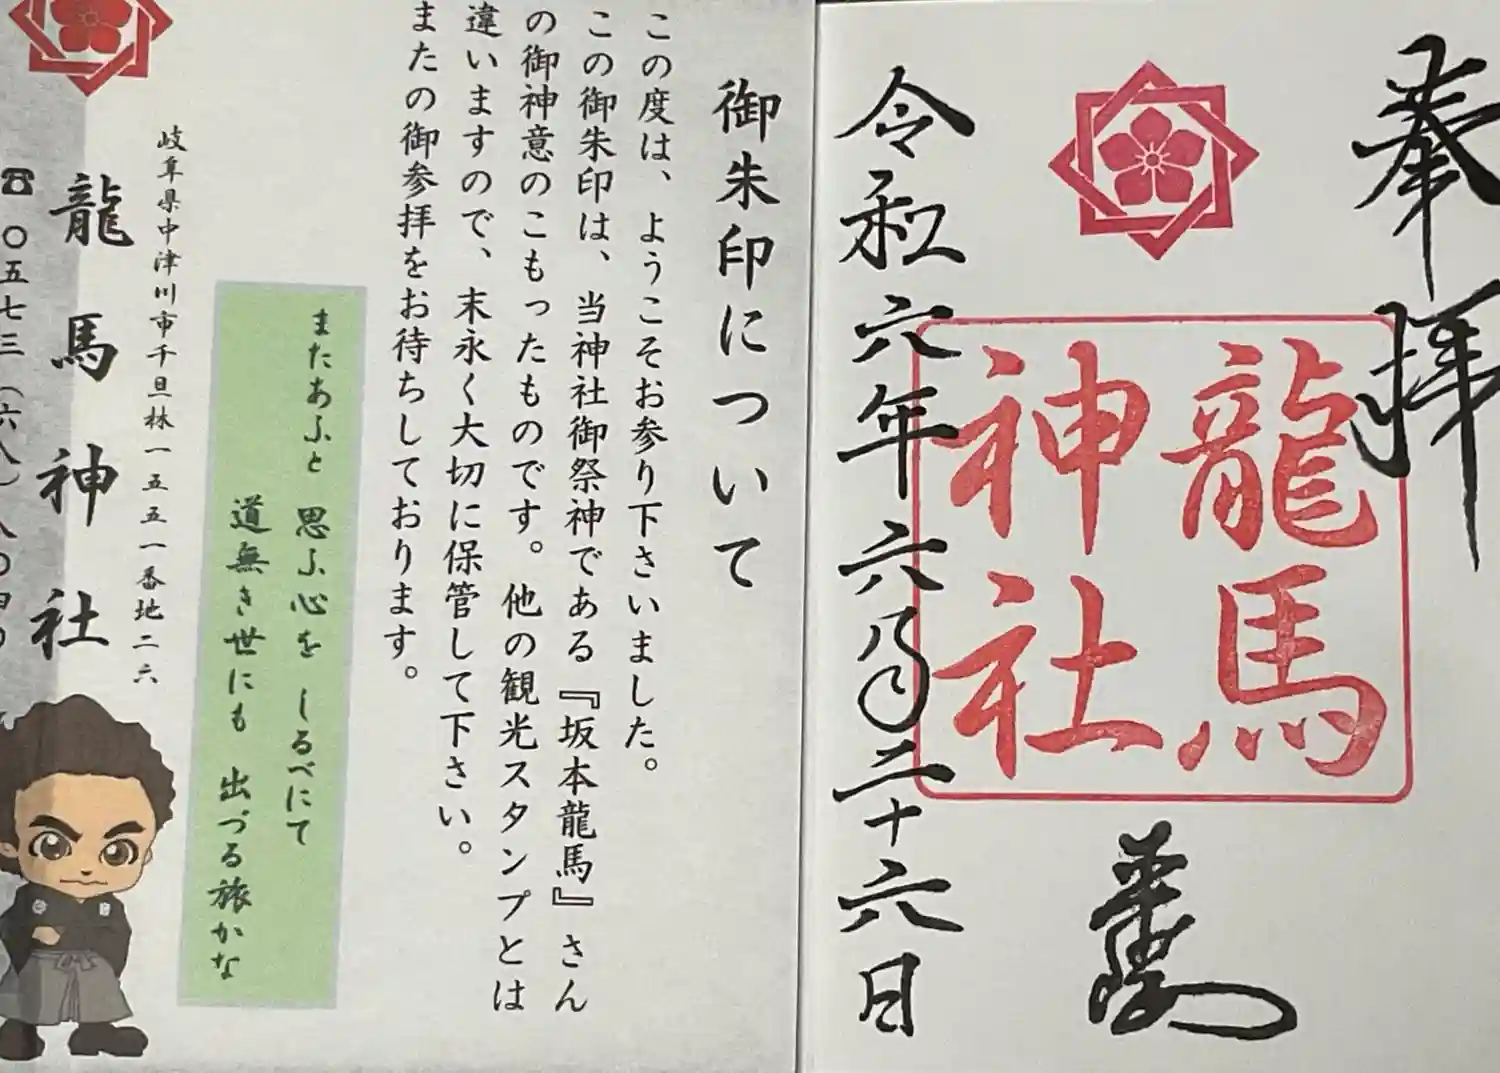 奉拝
龍馬
神社
令和六年六月二十六日
御朱印について
この度は、ようこそお参り下さいました。
この御朱印は、当神社御祭神である『坂本龍馬』さん
の御神意のこもったものです。他の観光スタンプとは
違いますので、末永く大切に保管して下さい。
またの御参拝をお待ちしております。
またあふと 思ふ心を しるべにて
道無き世にも 出づる旅かな
岐阜県中津川市千旦林一五五一番地二六
龍馬神社
☎〇五七三(六八)八〇四〇